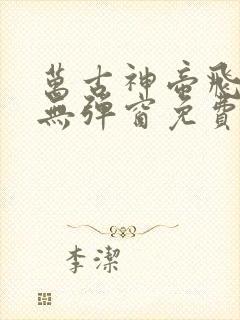 萬古神帝飛
無彈窗免費
李潔